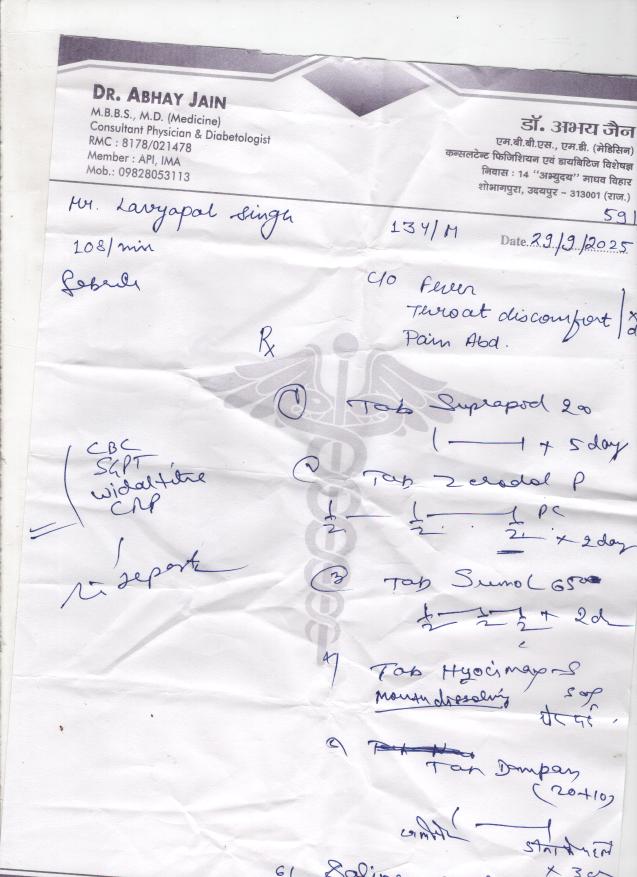 DR. ABHAY JAIN
M.B.B.S., M.D. (Medicine)
Consultant Physician & Diabetologist
RMC : 8178/021478
Member : API, IMA
Mob.: 09828053113
डॉ. अभय जैन
एम.बी.बी.एस., एम.डी. (मेडिसिन)
कन्सलटेन्ट फिजिशियन एवं डायबिटिज विशेषज्ञ
निवास : 14 "अभ्युदय" माधव विहार
शोभागपुरा, उदयपुर - 313001 (राज.)
59
Mr. Lavyapal Singh
134/M
Date 29/9/2025
108/min
c/o Fever
Throat discomfort
Pain Abd.
Rx
1 Tab Suprapod 200
1 — 1 × 5 day
CBC
SGPT
Widal titre
CRP
2 Tab Zerodol P
1/2 — 1/2 — 1/2 PC
× 2 day
report
3 Tab Sumol 650
1/2 — 1/2 — 1/2 × 2d
4) Tab Hyocimax-S
Mouth dissolving SOS
Tab Dompan
(20+10)
6)